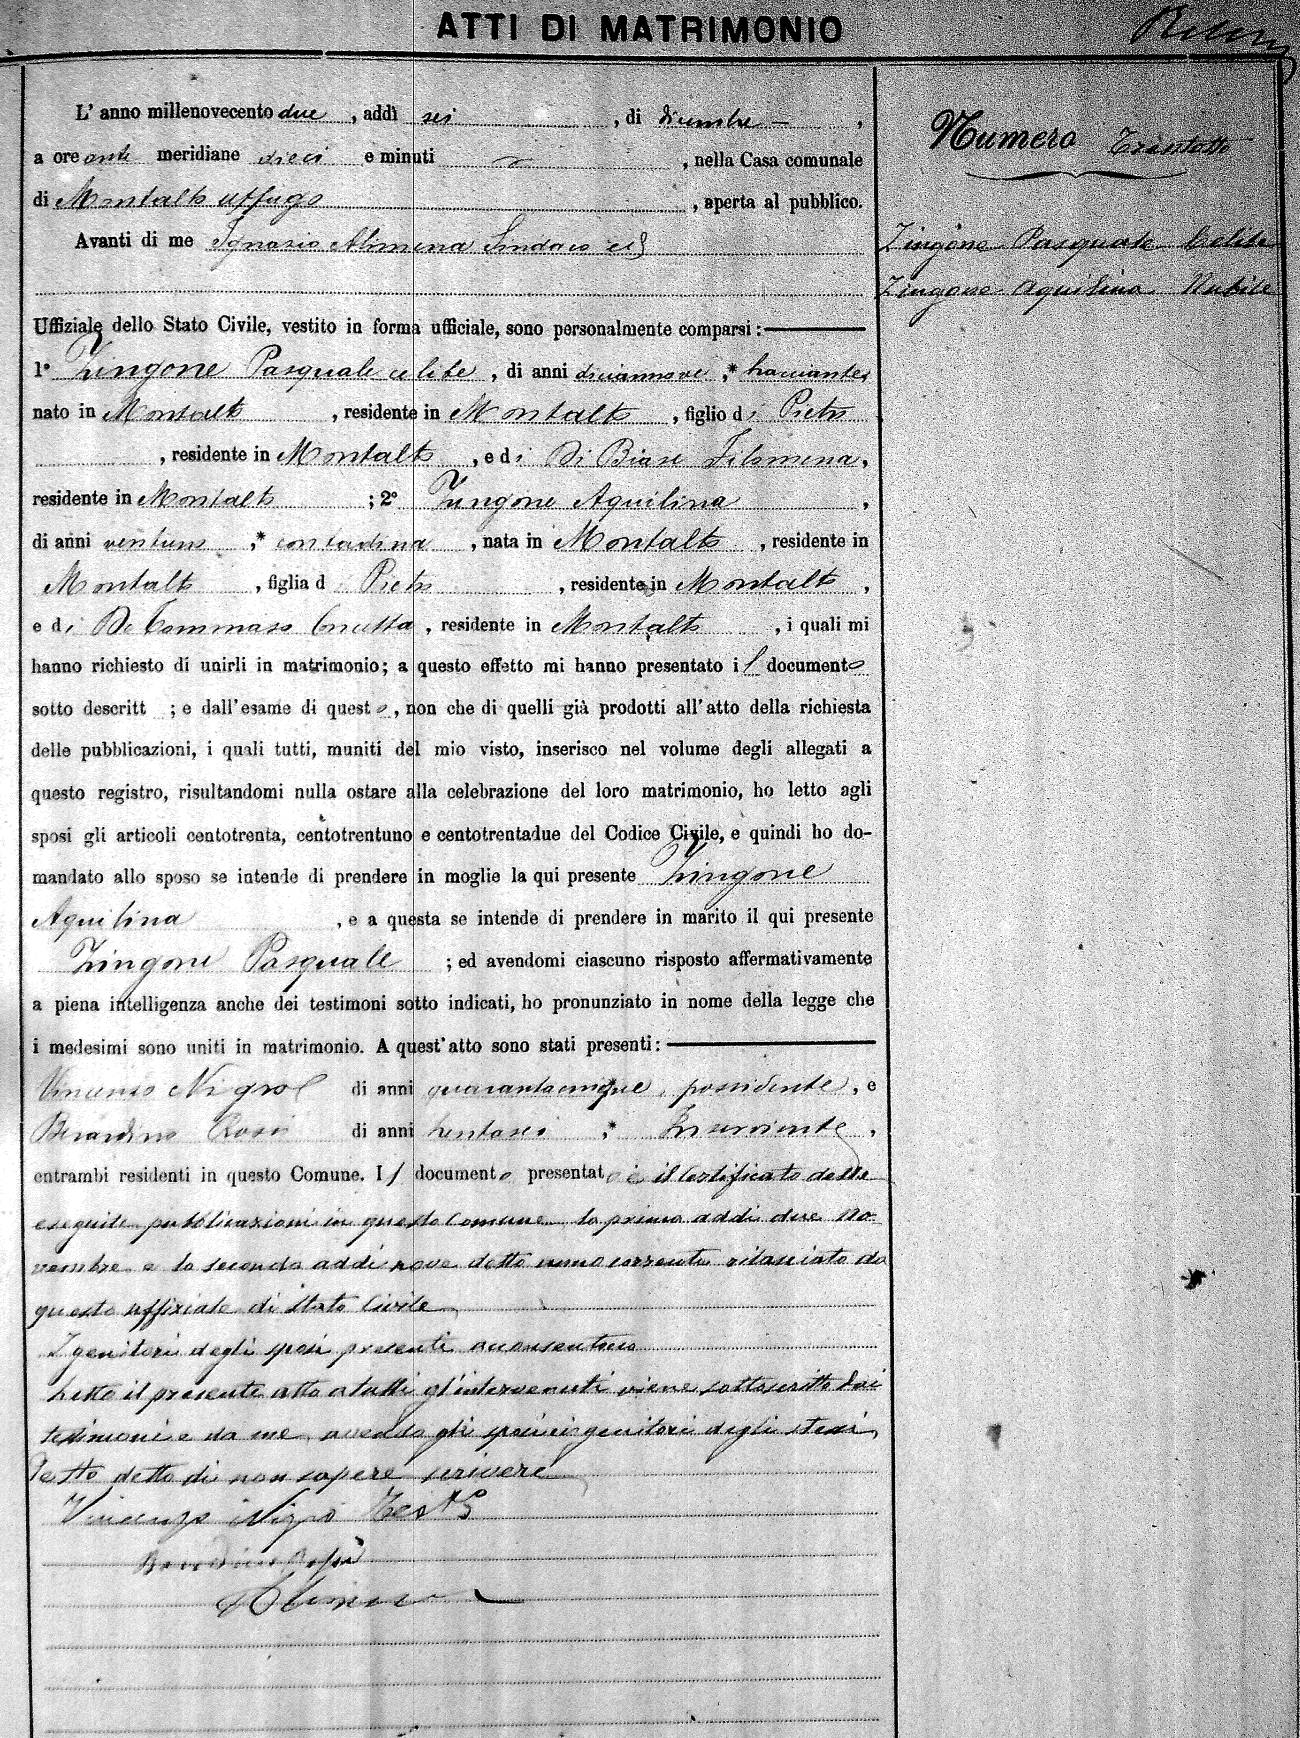 ATTI DI MATRIMONIO
L' anno millenovecento due, addì sei, di dicembre,
a ore anti meridiane dieci e minuti, nella Casa comunale
di Montalto Uffugo, aperta al pubblico.
Avanti di me Ignazio Alimena Sindaco ed
Uffiziale dello Stato Civile, vestito in forma ufficiale, sono personalmente comparsi:
1° Zingone Pasquale celibe, di anni diciannove,* bracciante,
nato in Montalto, residente in Montalto, figlio di Pietro
, residente in Montalto, e di Di Biase Filomena,
residente in Montalto; 2° Zingone Aquilina,
di anni ventuno,* contadina, nata in Montalto, residente in
Montalto, figlia d Pietro, residente in Montalto,
e di De Tommaso, residente in Montalto, i quali mi
hanno richiesto di unirli in matrimonio; a questo effetto mi hanno presentato il documento
sotto descritt; e dall'esame di questo, non che di quelli già prodotti all'atto della richiesta
delle pubblicazioni, i quali tutti, muniti del mio visto, inserisco nel volume degli allegati a
questo registro, risultandomi nulla ostare alla celebrazione del loro matrimonio, ho letto agli
sposi gli articoli centotrenta, centotrentuno e centotrentadue del Codice Civile, e quindi ho do-
mandato allo sposo se intende di prendere in moglie la qui presente Zingone
Aquilina, e a questa se intende di prendere in marito il qui presente
Zingone Pasquale; ed avendomi ciascuno risposto affermativamente
a piena intelligenza anche dei testimoni sotto indicati, ho pronunziato in nome della legge che
i medesimi sono uniti in matrimonio. A quest'atto sono stati presenti:
Vincenzo Nigro di anni quarantacinque, possidente, e
Berardino Rossi di anni trentasei,* Inserviente,
entrambi residenti in questo Comune. Il documento presentato è il Certificato delle
eseguite pubblicazioni in questo Comune la prima addì due No-
vembre e la seconda addì nove detto anno corrente rilasciato da
questo uffiziale di Stato Civile
I genitori degli sposi presenti acconsentono
Letto il presente atto a tutti gl'intervenuti viene sottoscritto dai
testimoni e da me, avendo gli sposi ei genitori degli stessi,
detto di non sapere scrivere
Vincenzo Nigro Testo
Berardino Rossi
Alimena
Numero Trentotto
Zingone Pasquale Celibe
Zingone Aquilina Nubile